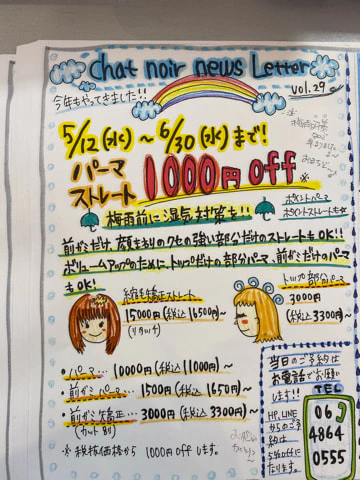 chat noir news Letter
vol.29
今年もやってきました!!
5/12(水)~6/30(水)まで!
パーマ
ストレート
1000円 off※
ポイントパーマ
ポイントストレートも☆
梅雨前に湿気対策を!!
前がみだけ、顔まわりのクセの強い部分だけのストレートもOK!!
ボリュームアップのために、トップだけの部分パーマ、前がみだけのパーマ
もOK!
縮毛矯正ストレート
15000円(税込16500)~
(リタッチ)
トップ部分パーマ
3000円
(税込3300)~
・パーマ… 10000円(税込11000円)~
・前がみパーマ… 1500円(税込1650)~
・前がみ矯正… 3000円(税込3300)~
(カット別)
※税抜価格から1000円offします。
当日のご予約は
お電話でお願い
します!!
HP,LINE
からのご予
約は
5%offに
なります。
TEL
06
4864
0555